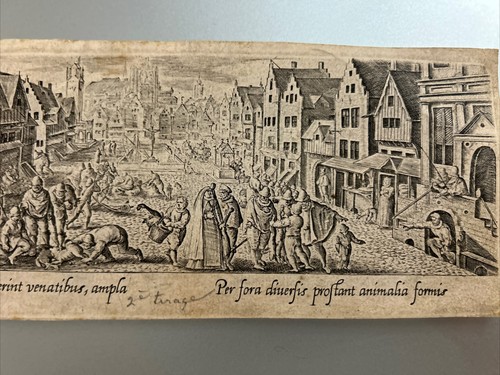 erint venatibus, ampla
Per fora diuersis prostant animalia formis
2ᵉ tirage